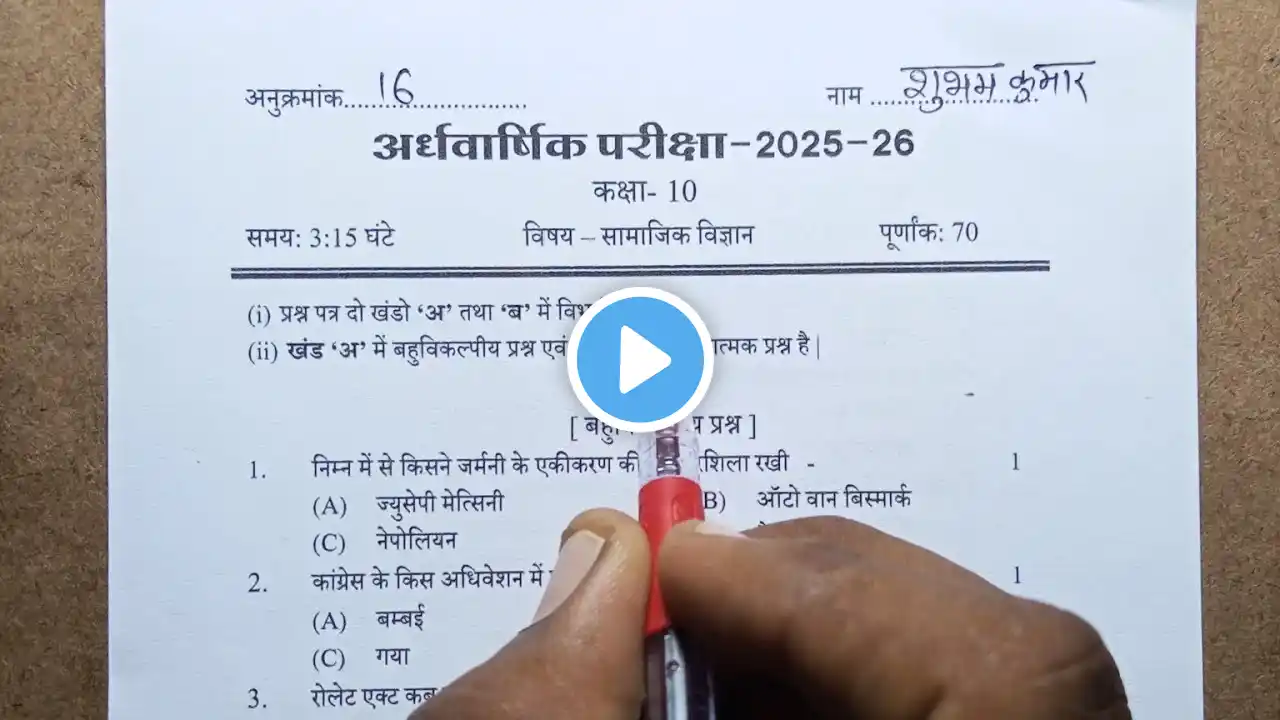 अनुक्रमांक 16 नाम शुभम कुमार
अर्धवार्षिक परीक्षा-2025-26
कक्षा- 10
समय: 3:15 घंटे विषय – सामाजिक विज्ञान पूर्णांक: 70
(i) प्रश्न पत्र दो खंडो ‘अ’ तथा ‘ब’ में
(ii) खंड ‘अ’ में बहुविकल्पीय प्रश्न एवं प्रश्न है |
[ प्रश्न ]
1. निम्न में से किसने जर्मनी के एकीकरण की रखी - 1
(A) ज्युसेपी मेत्सिनी B) ऑटो वान बिस्मार्क
(C) नेपोलियन
2. कांग्रेस के किस अधिवेशन में 1
(A) बम्बई
(C) गया
3. रोलेट एक्ट कब